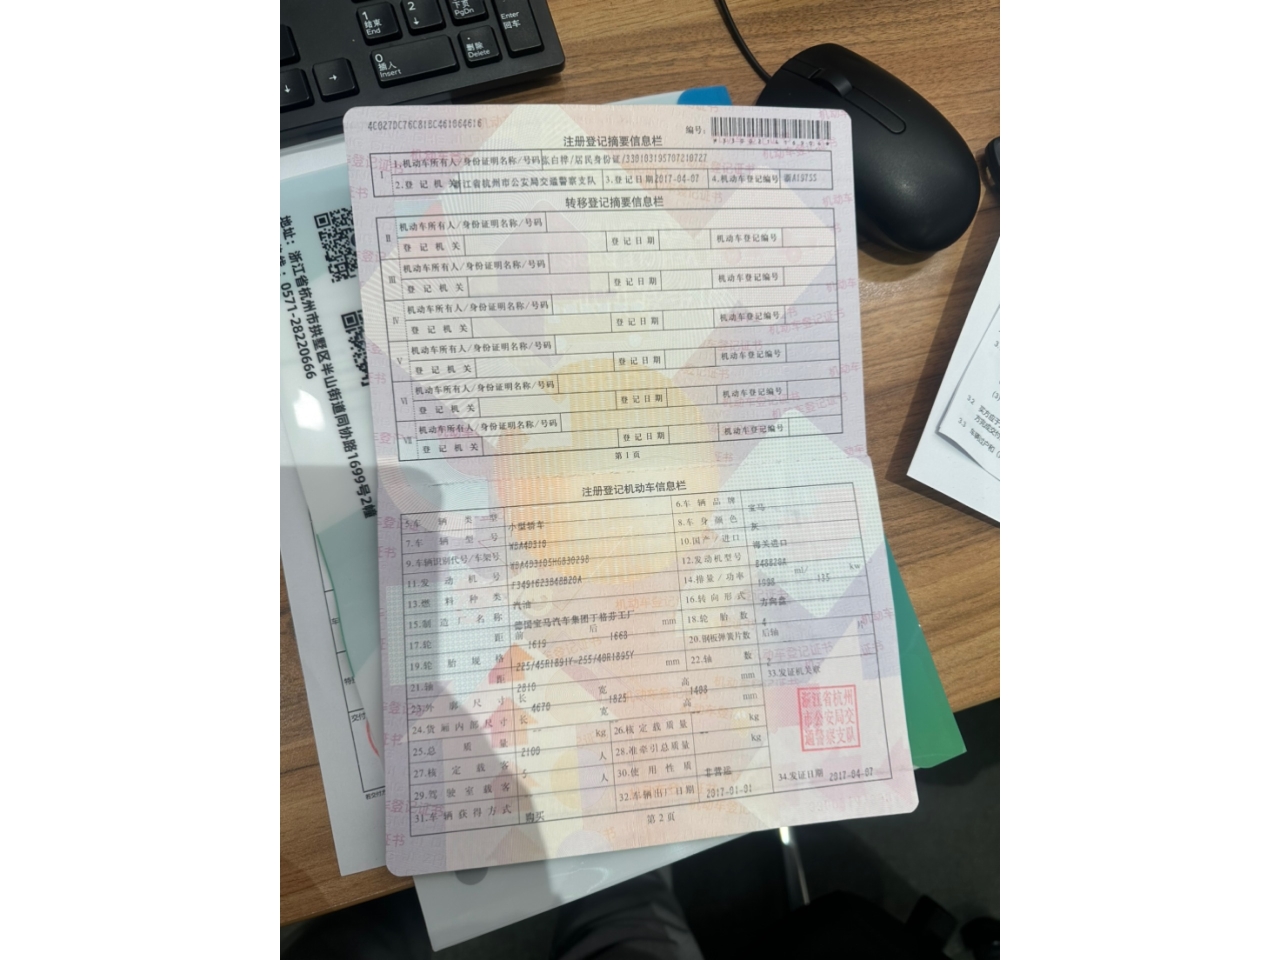 1
结束
End
2
↓
下页
PgDn
Enter
回车
0
插入
Insert
.
删除
Delete
↓
→
4C027DC76C818C461064616
编号:
注册登记摘要信息栏
I
1.机动车所有人/身份证明名称/号码
/居民身份证/330103195707210727
2.登记机关
浙江省杭州市公安局交通警察支队
3.登记日期
2017-04-07
4.机动车登记编号
转移登记摘要信息栏
II
机动车所有人/身份证明名称/号码
登记机关
登记日期
机动车登记编号
III
机动车所有人/身份证明名称/号码
登记机关
登记日期
机动车登记编号
IV
机动车所有人/身份证明名称/号码
登记机关
登记日期
机动车登记编号
V
机动车所有人/身份证明名称/号码
登记机关
登记日期
机动车登记编号
VI
机动车所有人/身份证明名称/号码
登记机关
登记日期
机动车登记编号
VII
机动车所有人/身份证明名称/号码
登记机关
登记日期
机动车登记编号
第1页
注册登记机动车信息栏
5.车辆类型 小型轿车 6.车辆品牌 宝马
7.车辆型号 WBA4D310 8.车身颜色 灰
9.车辆识别代号/车架号 10.国产/进口 海关进口
11.发动机号 12.发动机型号 B48B20A
13.燃料种类 汽油 14.排量/功率 1998 ml/ 135 kw
15.制造厂名称 德国宝马汽车集团丁格芬工厂 16.转向形式 方向盘
17.轮距 前 1619 后 1668 mm 18.轮胎数 4
19.轮胎规格 225/45R1891Y-255/40R1895Y 20.钢板弹簧片数 后轴 片
21.轴距 2810 mm 22.轴数 2
23.外廓尺寸 长 4670 宽 1825 高 1408 mm 33.发证机关章
24.货厢内部尺寸 长 宽 高 mm
25.总质量 2100 kg 26.核定载质量 kg
27.核定载客 5 人 28.准牵引总质量 kg
29.驾驶室载客 人 30.使用性质 非营运
31.车辆获得方式 购买 32.车辆出厂日期 2017-01-01 34.发证日期 2017-04-07
浙江省杭州
市公安局交
通警察支队
第2页
地址:浙江省杭州市拱墅区半山街道同协路1699号2幢
0571-28220666